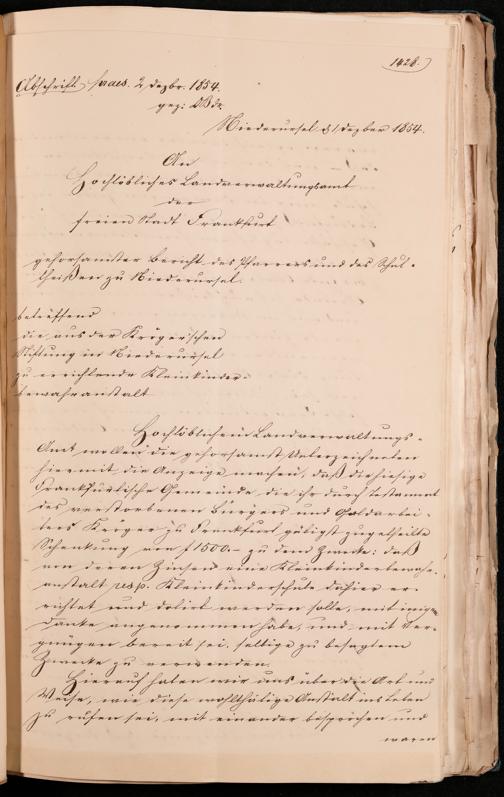 1428.
Abschrift. praes. 2 Dezbr. 1854.
gez:
Niederursel d. 1 Dezber 1854.
An
Hochlöbliches Landverwaltungsamt
der
freien Stadt Frankfurt
gehorsamster Bericht des Pfarrers und des Schul-
theißen zu Niederursel.
betreffend
die aus der Kröger'schen
Stiftung in Niederursel
zu errichtende Kleinkinder-
bewahranstalt
Hochlöblichem Landverwaltungs-
Amt wollen die gehorsamst Unterzeichneten
hiermit die Anzeige machen, daß die hiesige
Frankfurtische Gemeinde die ihr durch Testament
des verstorbenen Bürgers und Goldarbei-
ters Kröger zu Frankfurt gütigst zugetheilte
Schenkung von f 1500.- zu dem Zwecke: daß
von deren Zinsen eine Kleinkinderbewahr-
anstalt resp. Kleinkinderschule dahier er-
richtet und dotirt werden solle, mit innigem
Danke angenommen habe, und mit Ver-
gnügen bereit sei, selbige zu besagtem
Zwecke zu verwenden.
Hierauf haben wir uns über die Art und
Weise, wie diese wohlthätige Anstalt ins Leben
zu rufen sei, mit einander besprochen und
waren